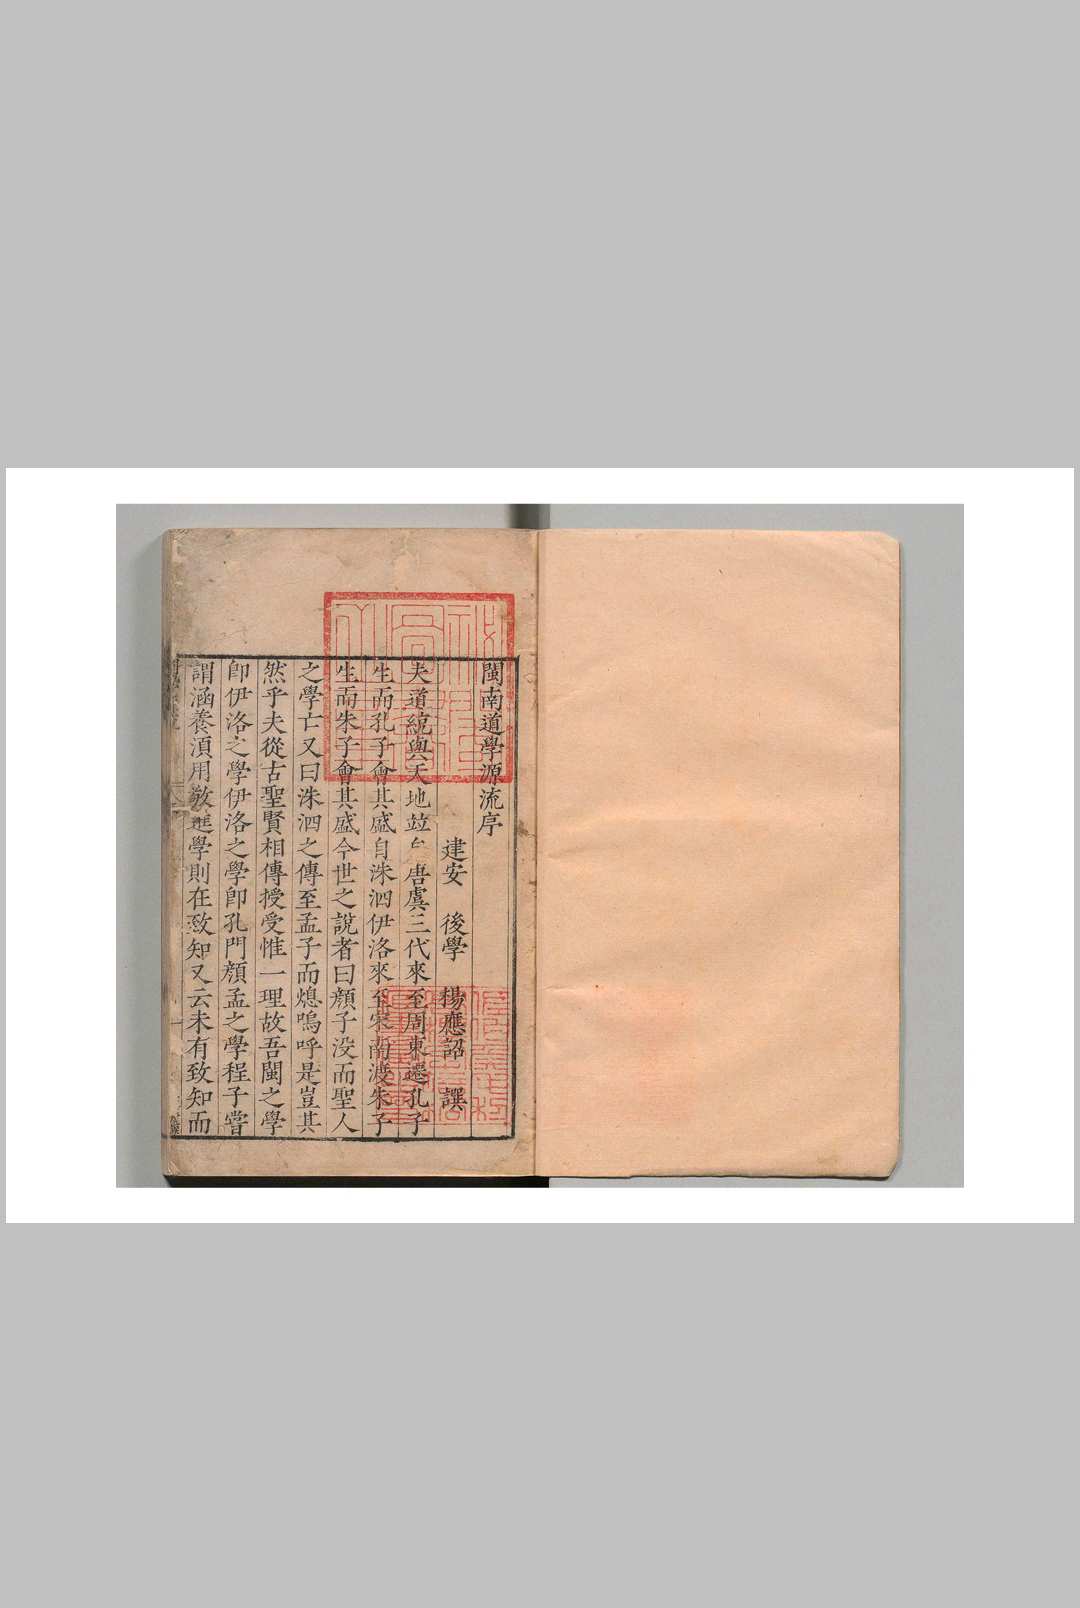 閩南道學源流序
建安 後學 楊應詔 撰
夫道統與天地並自唐虞三代來至周東遷孔子
生而孔子會其盛自洙泗伊洛來至宋南渡朱子
生而朱子會其盛今世之說者曰顔子没而聖人
之學亡又曰洙泗之傳至孟子而熄嗚呼是豈其
然乎夫從古聖賢相傳授受惟一理故吾閩之學
卽伊洛之學伊洛之學卽孔門顔孟之學程子嘗
謂涵養湏用敬進學則在致知又云未有致知而